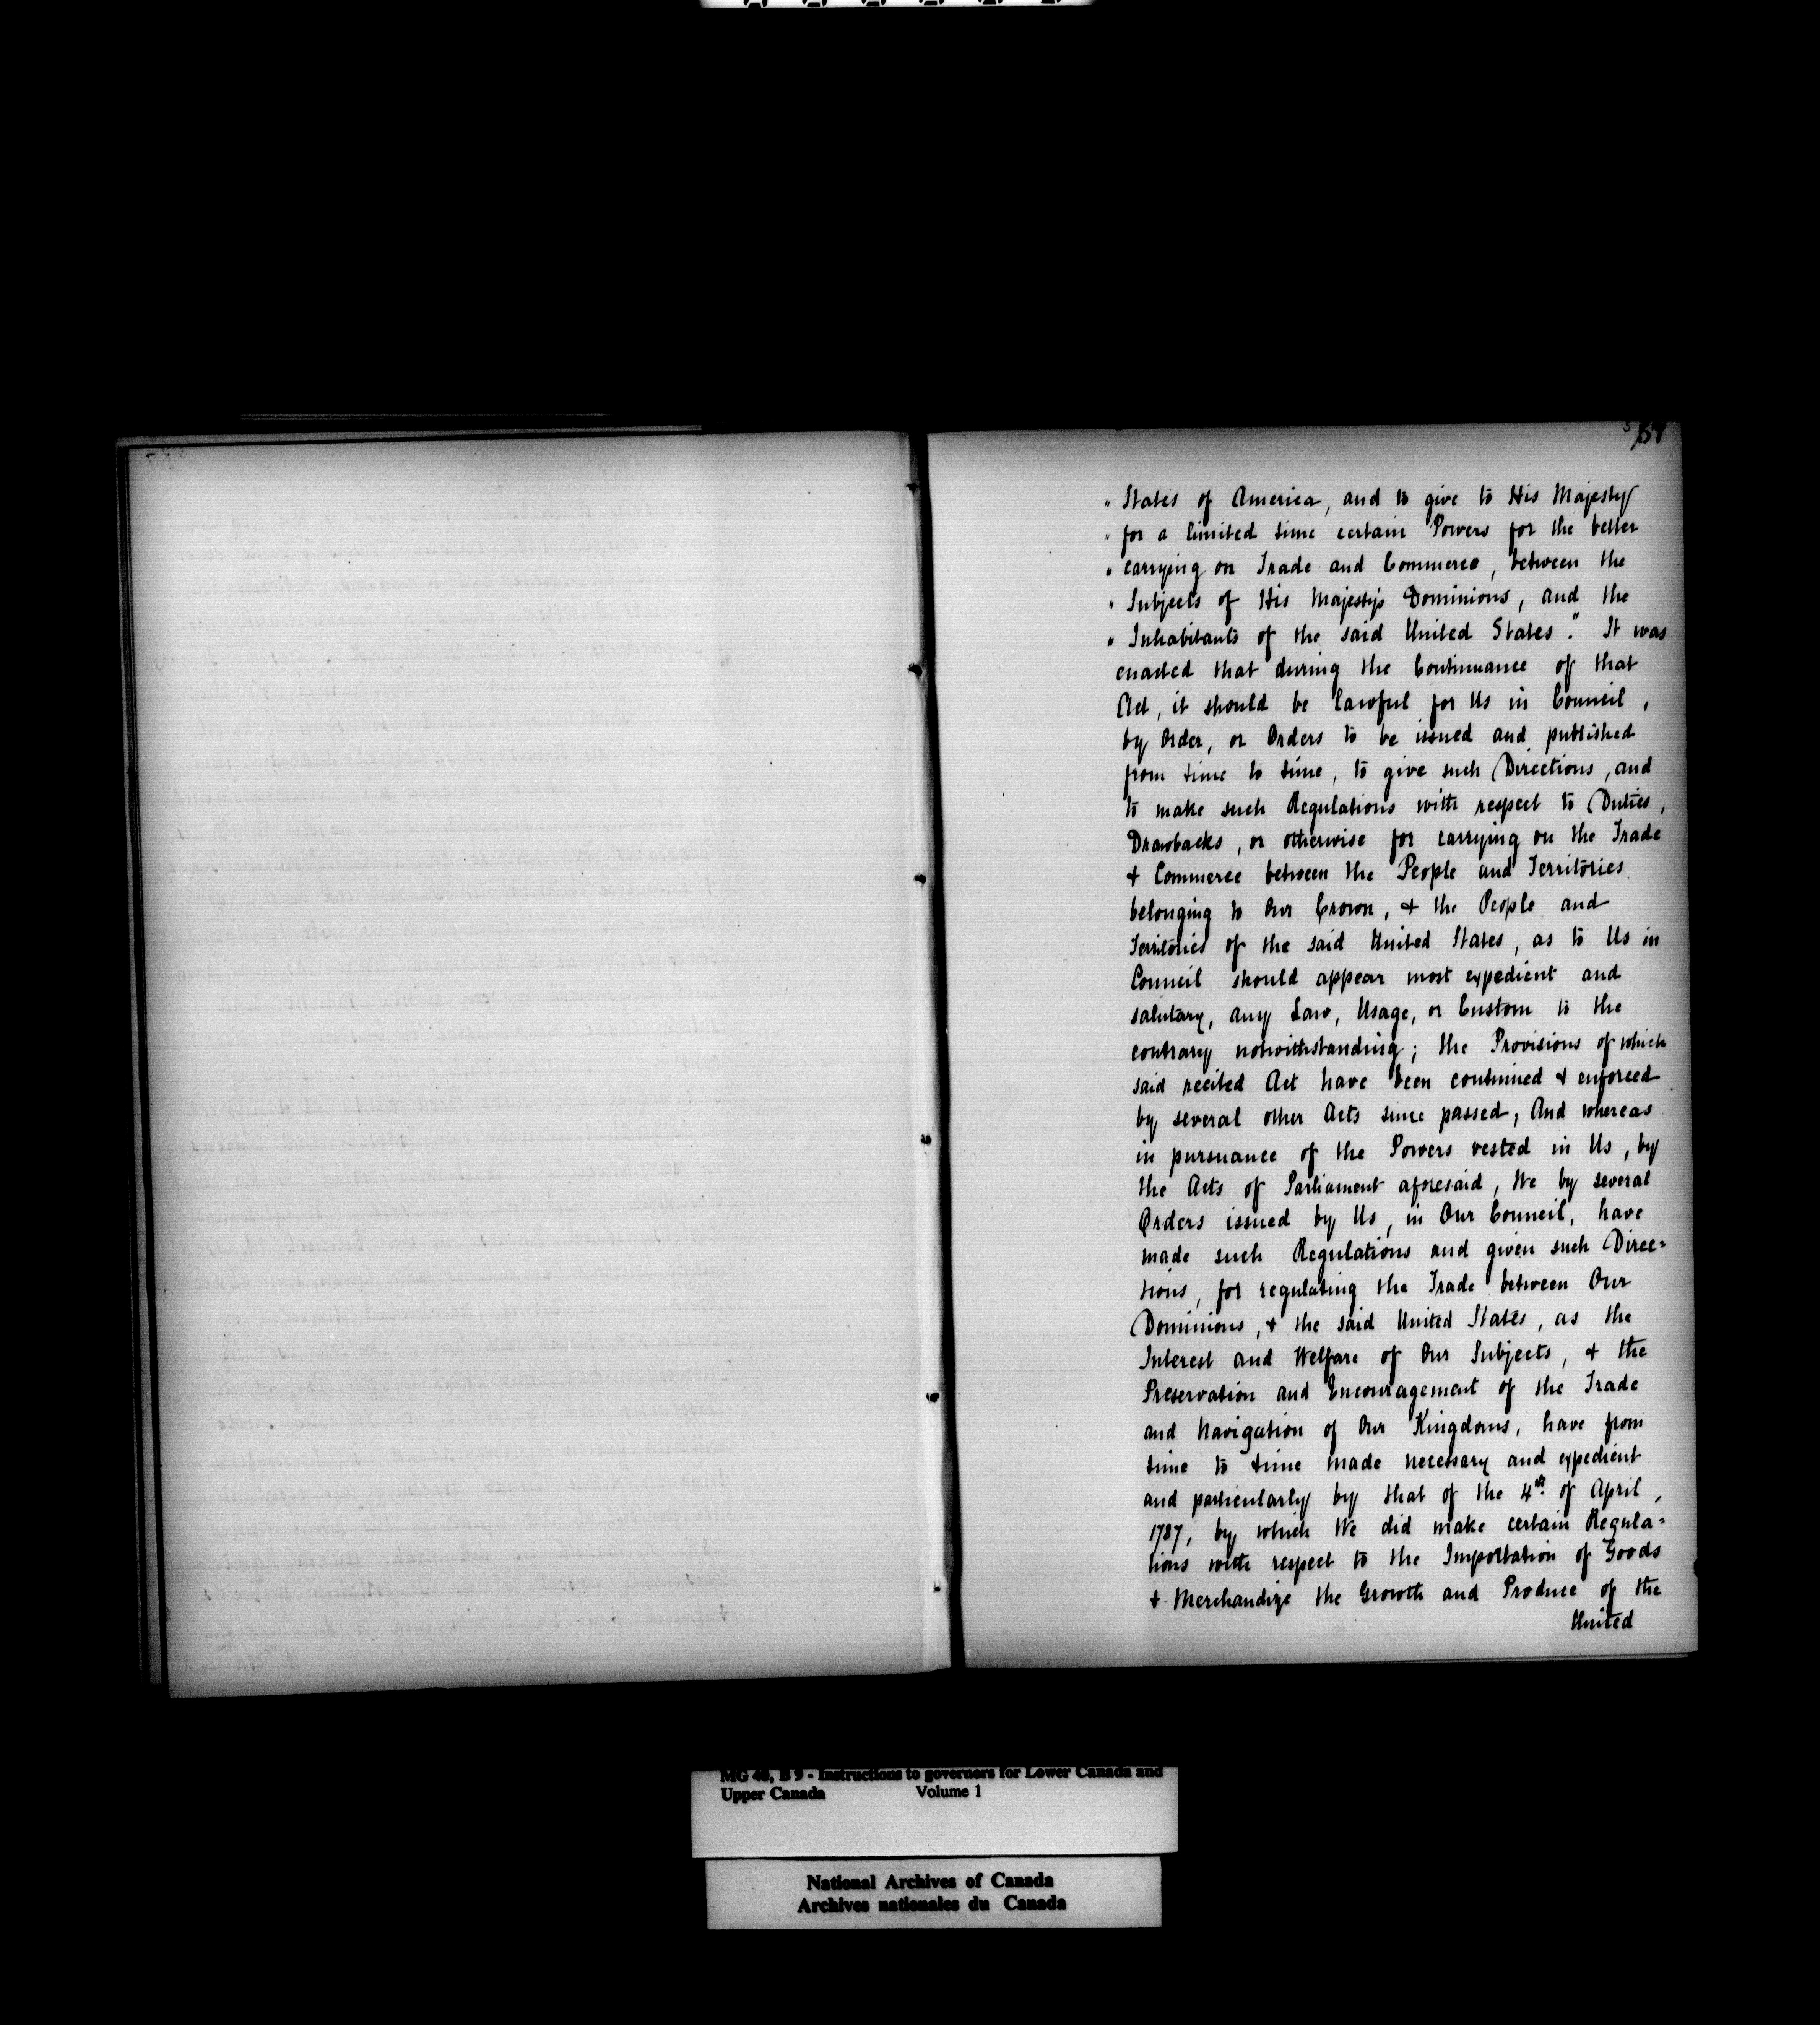 " States of America, and to give to His Majesty
" for a limited time certain Powers for the better
" carrying on Trade and Commerce, between the
" Subjects of His Majesty's Dominions, and the
" Inhabitants of the said United States." It was
enacted that during the Continuance of that
Act, it should be lawful for Us in Council,
by Order, or Orders to be issued and published
from time to time, to give such Directions, and
to make such Regulations with respect to Duties,
Drawbacks, or otherwise for carrying on the Trade
& Commerce between the People and Territories
belonging to Our Crown, & the People and
Territories of the said United States, as to Us in
Council should appear most expedient and
salutary, any Law, Usage, or Custom to the
contrary notwithstanding; the Provisions of which
said recited Act have been continued & enforced
by several other Acts since passed; And whereas
in pursuance of the Powers vested in Us, by
the Acts of Parliament aforesaid, We by several
Orders issued by Us, in Our Council, have
made such Regulations and given such Direc=
tions, for regulating the Trade between Our
Dominions, & the said United States, as the
Interest and Welfare of Our Subjects, & the
Preservation and Encouragement of the Trade
and Navigation of Our Kingdoms, have from
time to time made necessary and expedient
and particularly by that of the 4th of April,
1787, by which We did make certain Regula=
tions with respect to the Importation of Goods
& Merchandize the Growth and Produce of the
United
MG 40, B 9 - Instructions to governors for Lower Canada and
Upper Canada Volume 1
National Archives of Canada
Archives nationales du Canada